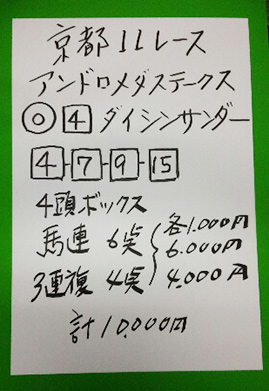 京都11レース
アンドロメダステークス
◎ 4 ダイシンサンダー
4-7-9-15
4頭ボックス
各1.000円
馬連 6点 6.000円
3連複 4点 4.000円
計10.000円